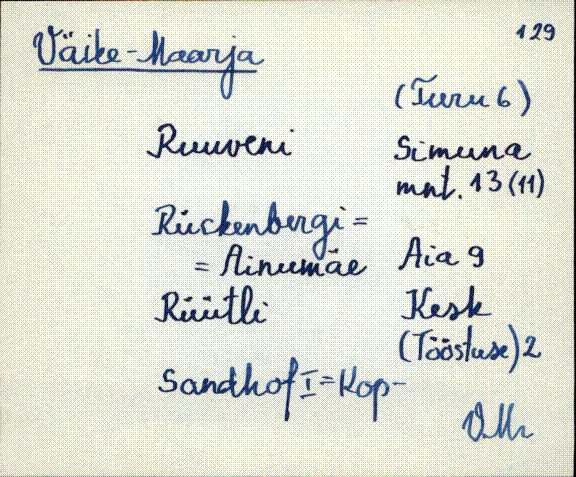 129
Väike-Maarja
(Turu 6)
Ruuveni Simuna
mnt. 13 (11)
Rückenbergi =
= Ainumäe Aia 9
Rüütli Kesk
(Tööstuse) 2
Sandhof I = Kop-